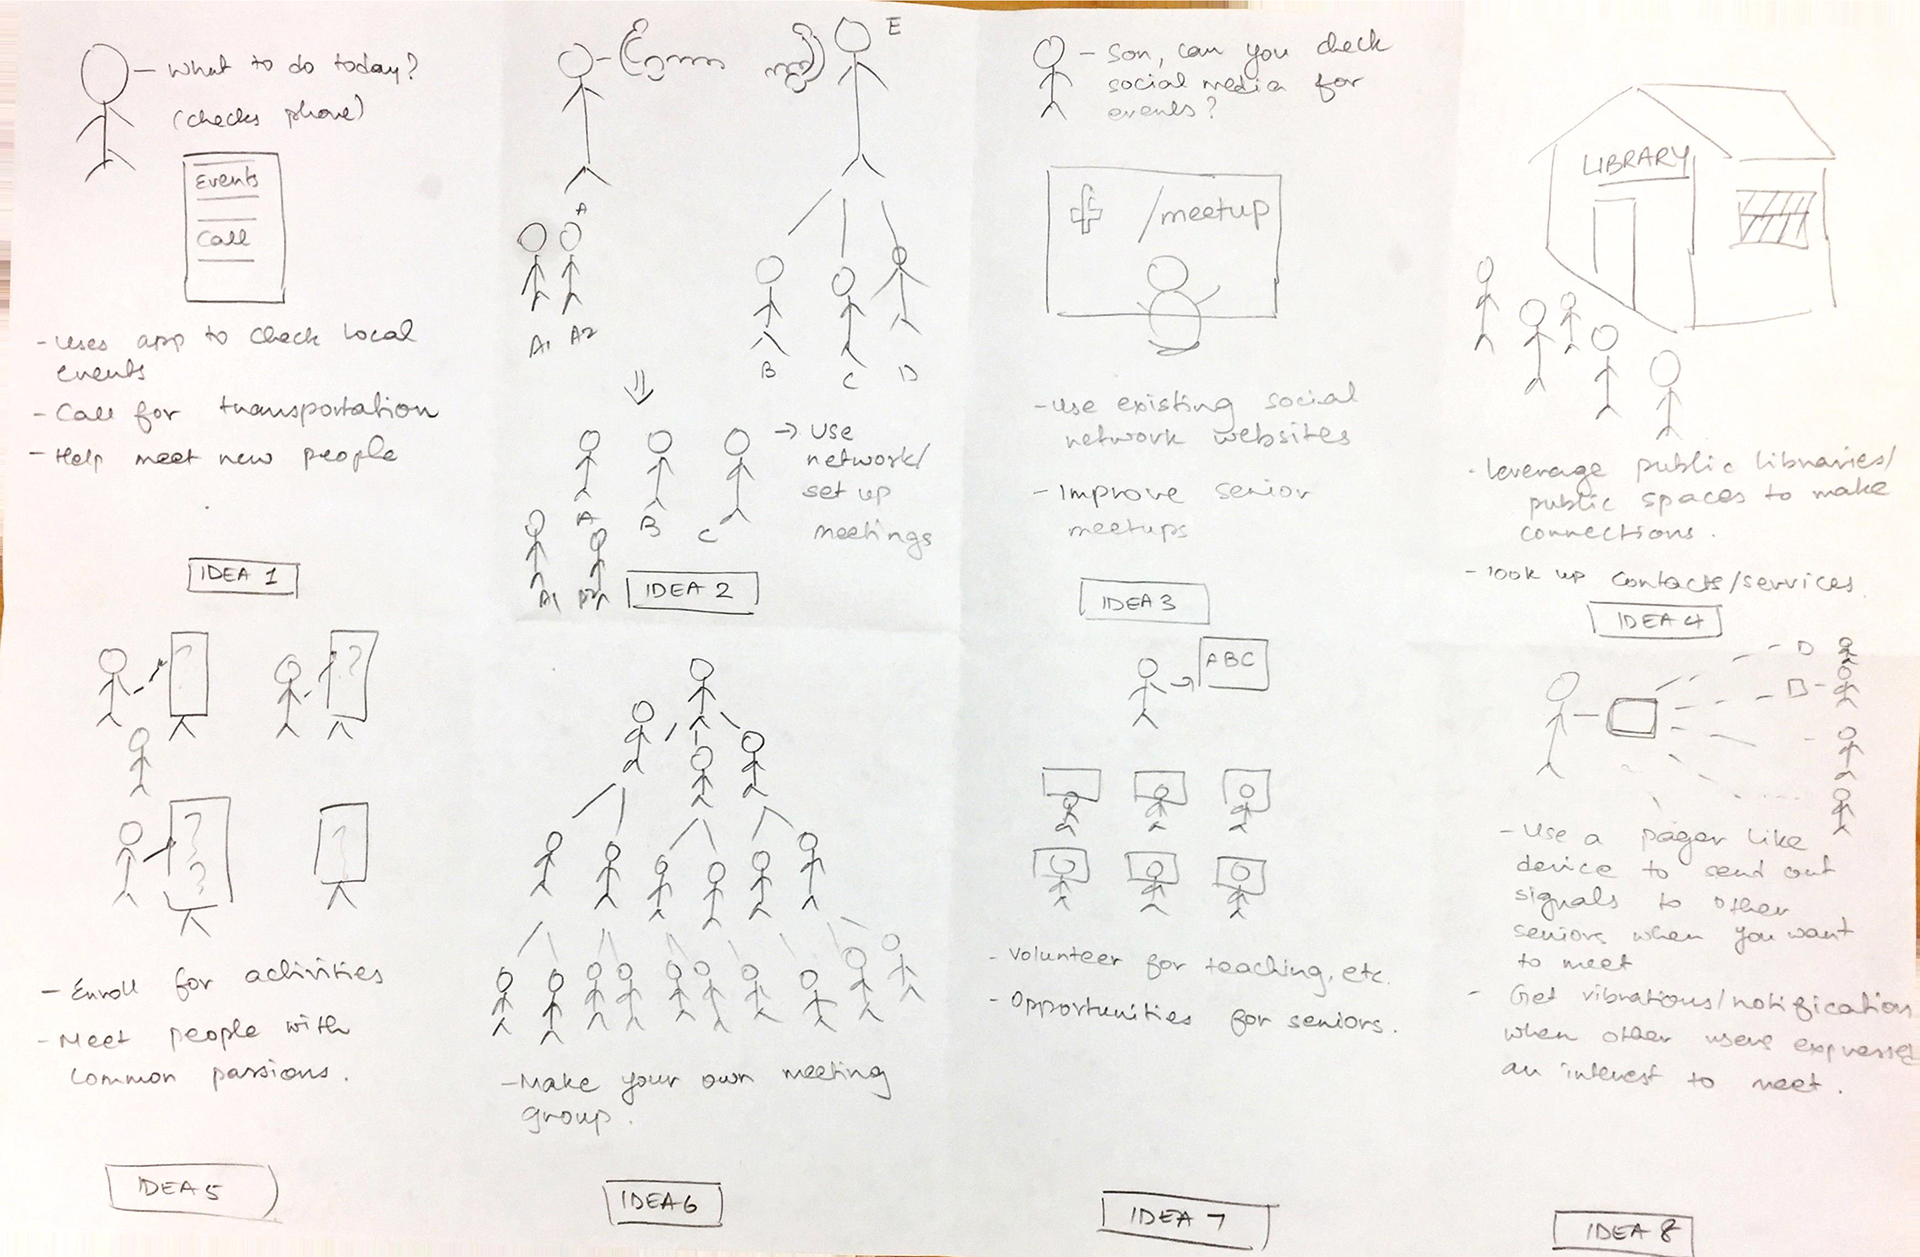 - What to do today?
(checks phone)
Events
Call
- Uses app to check local
events
- Call for transportation
- Help meet new people
IDEA 1
E
A
A1 A2
B C D
→ Use
network/
set up
meetings
A B C
A1 A2
IDEA 2
- Son, can you check
social media for
events?
f /meetup
- Use existing social
network websites
- Improve senior
meetups
IDEA 3
LIBRARY
- leverage public libraries/
public spaces to make
connections.
- look up contacts/services.
IDEA 4
?
?
?
?
?
- Enroll for activities
- Meet people with
common passions.
IDEA 5
- Make your own meeting
group.
IDEA 6
ABC
- Volunteer for teaching, etc.
- Opportunities for seniors.
IDEA 7
- Use a pager like
device to send out
signals to other
seniors when you want
to meet
- Get vibrations/notification
when other users expresses
an interest to meet.
IDEA 8